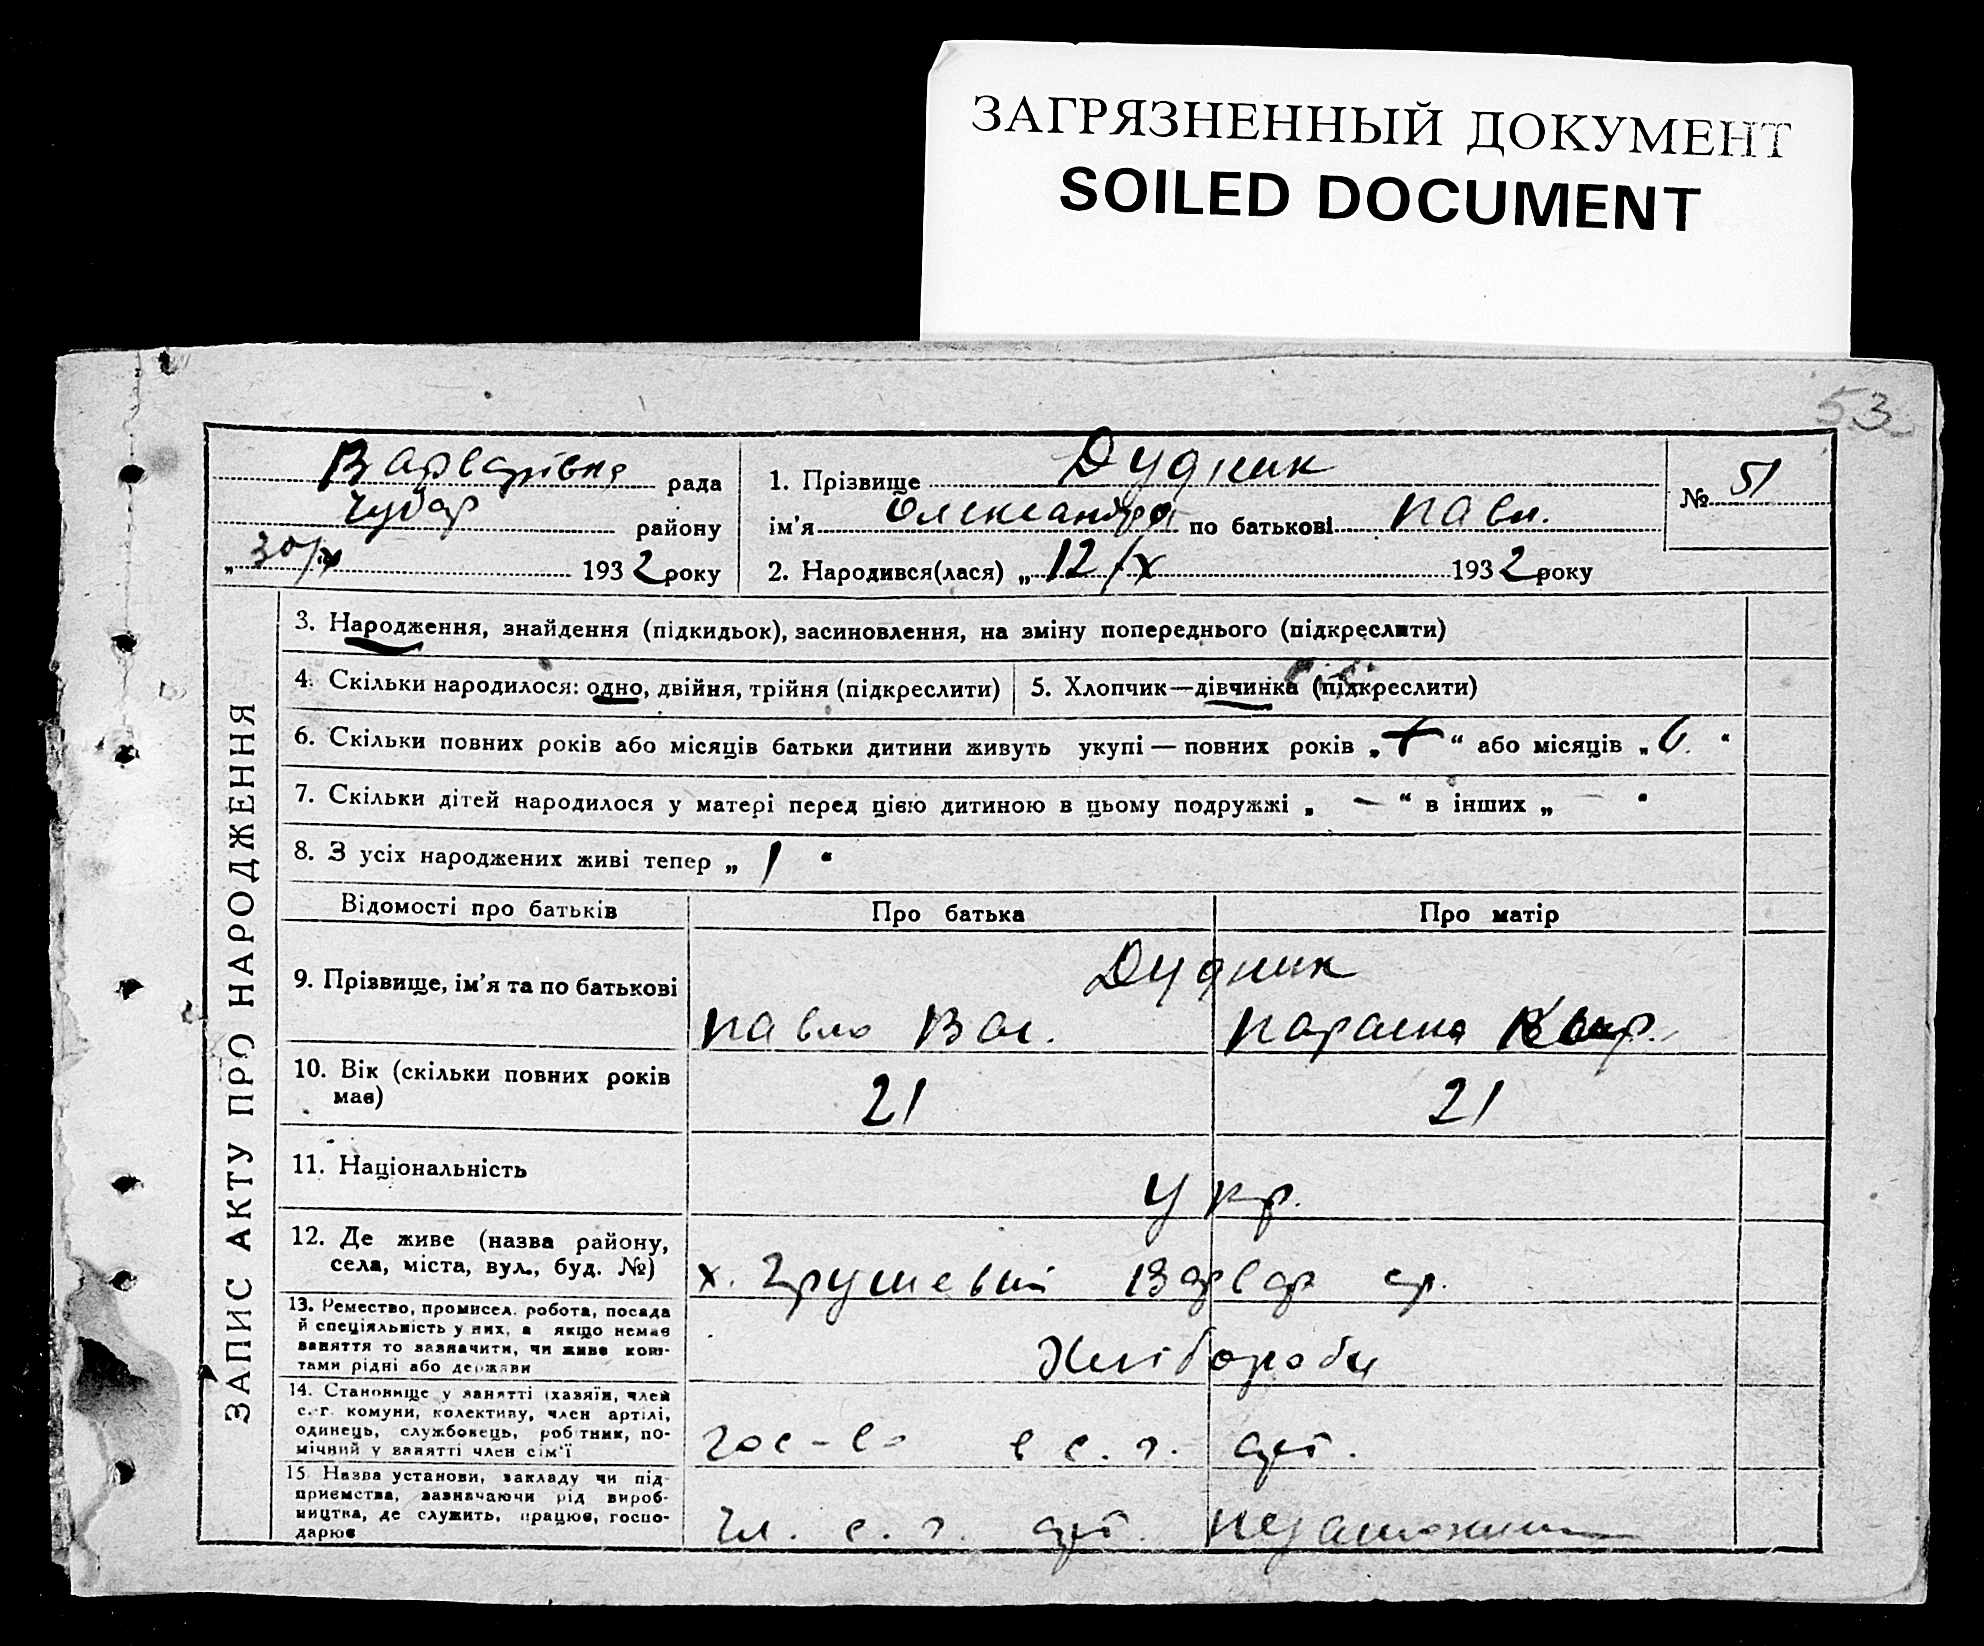 ЗАГРЯЗНЕННЫЙ ДОКУМЕНТ
SOILED DOCUMENT
53
Варварівка рада
Чубар району
„ 30/X 1932 року
1. Прізвище Дудник
ім'я Олександра по батькові Павл.
2. Народився(лася) „ 12/X 1932 року
№ 51
ЗАПИС АКТУ ПРО НАРОДЖЕННЯ
3. Народження, знайдення (підкидьок), засиновлення, на зміну попереднього (підкреслити)
4. Скільки народилося: одно, двійня, трійня (підкреслити)
5. Хлопчик—дівчинка (підкреслити)
6. Скільки повних років або місяців батьки дитини живуть укупі — повних років „ “ або місяців „ “
7. Скільки дітей народилося у матері перед цією дитиною в цьому подружжі „ — “ в інших „ — “
8. З усіх народжених живі тепер „ 1 “
Відомості про батьків
Про батька
Про матір
9. Прізвище, ім'я та по батькові
Дудник
Павло Вас.
Параска
10. Вік (скільки повних років
має)
21
21
11. Національність
Укр.
12. Де живе (назва району,
села, міста, вул., буд. №)
х. Грушевий Варвар ср.
13. Ремество, промисел, робота, посада
й спеціяльність у них, а якщо немає
заняття то зазначити, чи живе кош-
тами рідні або держави
Хлібороби
14. Становище у занятті (хазяїн, член
с.-г. комуни, колективу, член артілі,
одинець, службовець, робітник, по-
мічний у занятті член сім'ї
гос-во в с. г. арт.
15. Назва установи, закладу чи під-
приємства, зазначаючи рід вироб-
ництва, де служить, працює, госпо-
дарює
чл. с. г. арт.